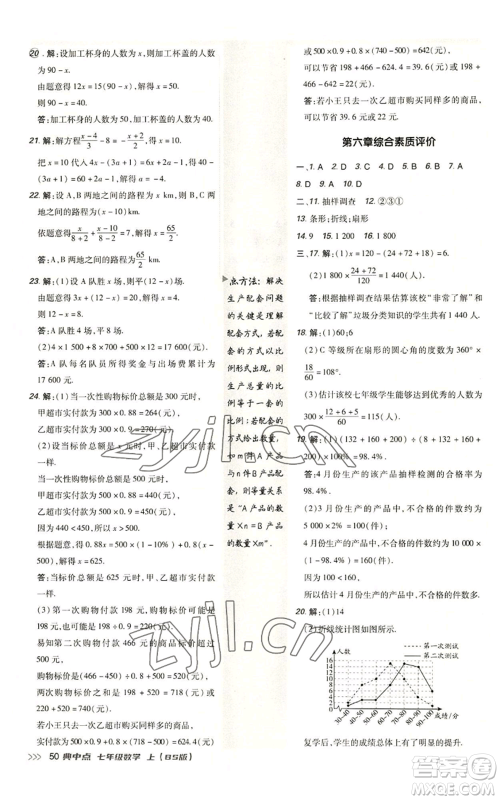 20. 解:设加工杯身的人数为 x,则加工杯盖的人数
为 90-x.
由题意得 12x=15(90-x),解得 x=50.
则 90-x=40.
答:加工杯身的人数为 50,加工杯盖的人数为 40.
21. 解:解方程(x-4)/3-8=-(x+2)/2,得 x=10.
把 x=10 代入 4x-(3a+1)=6x+2a-1,得
4×10-(3a+1)=60+2a-1,解得 a=-4.
22. 解:设 A,B 两地之间的路程为 x km,则 B,C 两
地之间的路程为(x-10) km.
由题意得 x/(8+2)+(x-10)/(8-2)=7,解得 x=65/2.
答:A,B 两地之间的路程为 65/2 km.
23. 解:(1)设 A 队胜 x 场,则平(12-x)场.
解得 x=
则 12-x=4.
答:A 队胜 8 场,平 4 场.
答:A 队每名队员所得奖金与出场费的和是
24. 解:(1)当一次性购物标价总额是 300 元时,
甲超市实付款为 300×0.88=264(元),
乙超市实付款为 300×0.9=270(元).
(2)设当标价总额是 x 元时,甲、乙超市实付款
一样.
当一次性购物标价总额是 500 元时,
甲超市实付款为 500×0.88=440(元),
乙超市实付款为 500×0.9=450(元).
因为 440<450,所以 x>500.
根据题意得 0.88x=500×0.9+0.8(x-500),
解得 x=625.
答:当标价总额是 625 元时,甲、乙超市实付款
一样.
(3)第一次购物付款 198 元,购物标价可能是
198 元,也可能是 198÷0.9=220(元),
易知第二次购物付款 466 元的购物标价超过
500 元.
两次购物标价之和是 198+520=718(元)或
220+520=740(元).
若小王只去一次乙超市购买同样多的商品,
实付款 500×0.9+0.8×(718-500)=624.4(元)
点方法:解决
生产配套问题
的关键是理解
配套方式,若
配套方式以比
例形式出现,则
生产总量的比
例等于一套的
比例;若配套的
方式给出数量,
如 m 件 A 产品
与 n 件 B 产品
配套,等量关系
是“A 产品的
数量×n=B 产
品的数量×m”.
或 500×0.9+0.8×(740-500)=642(元).
可以节省 198+466-624.4=39.6(元)或
198+466-642=22(元).
答:若小王只去一次乙超市购买同样多的商品,
可以节省 39.6 元或 22 元.
第六章综合素质评价
一、1. A 2. D 3. C 4. D 5. B 6. B 7. B
8. C 9. B 10. D
二、11. 抽样调查 12. ②③①
13. 条形;折线;扇形
14. 90 15. 1 200 16. 1 800
答:根据抽样调查结果估算该校“非常了解”和
“比较了解”垃圾分类知识的学生共有 1 440 人.
18. 解:(1)60;6
(2)C 等级所在扇形的圆心角的度数为 360°×
18/60=108°.
(3)估计该校七年级学生达到优秀的人数为
19. 解:(1)(132+160+200)÷(8+132+160+
200)×100%=98.4%.
答:4 月份生产的该产品抽样检测的合格率为
98.4%.
答:估计 4 月份生产的产品中,不合格的件数为
20. 解:(1)14
(2)折线统计图如图所示.
人数
第一次测试
第二次测试
16
14
12
10
8
6
4
2
0
30~40
40~50
50~60
60~70
70~80
80~90
90~100
成绩/分
复学后,学生的成绩总体上有了明显的提升.
zyjl.cn
zyjl.cn
>>> 50 典中点 七年级数学 上(BS版)